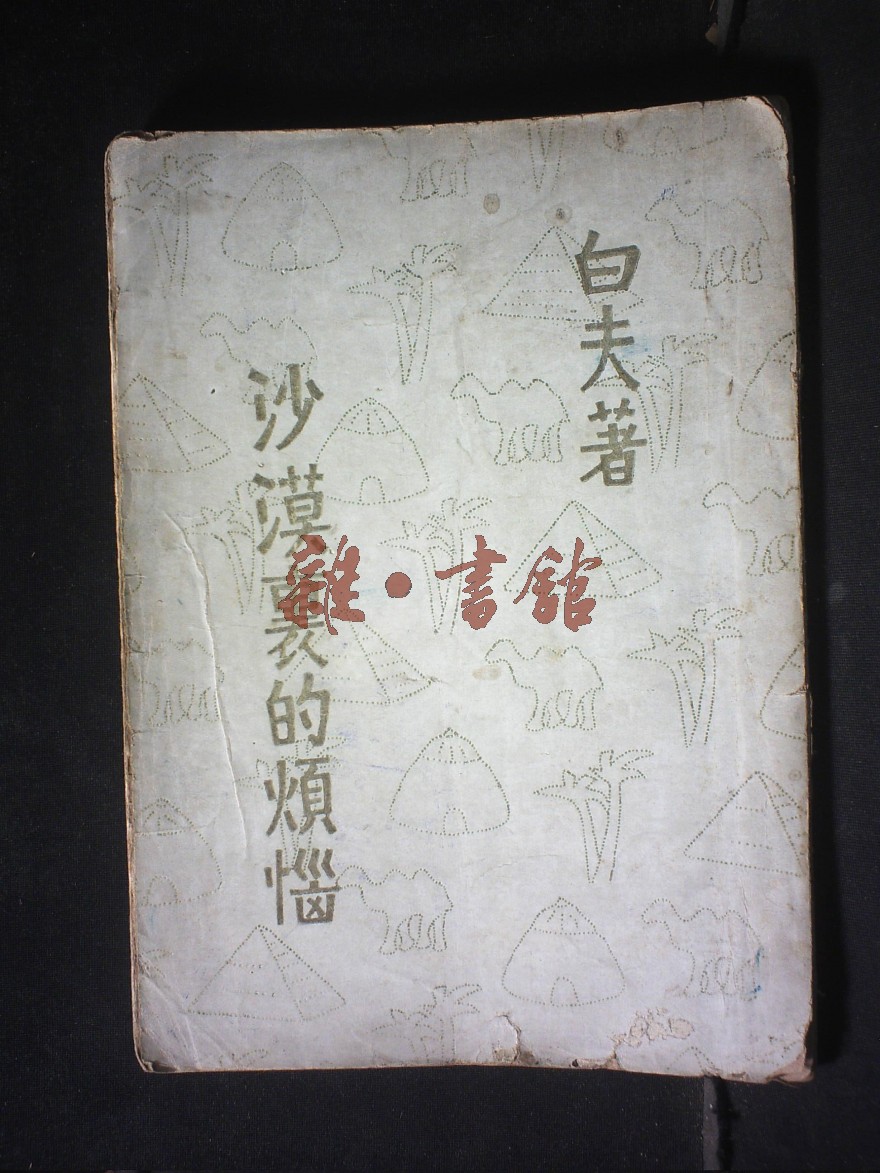 白夫著
沙漠裏的煩惱
雜·書館